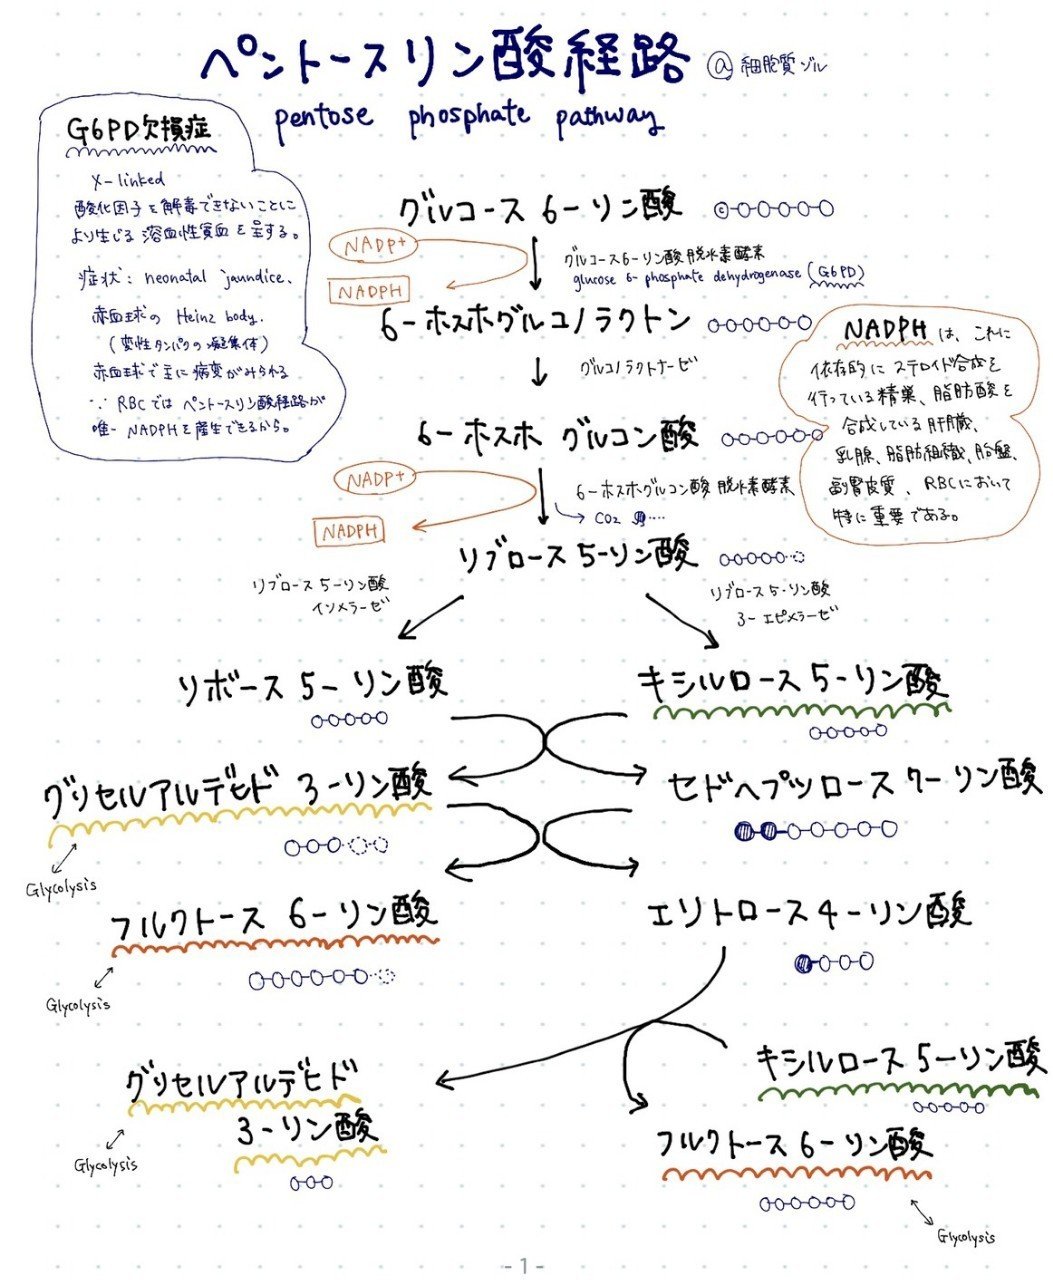 ペントースリン酸経路 @細胞質ゾル
pentose phosphate pathway
G6PD欠損症
X-linked
酸化因子を解毒できないことに
より生じる溶血性貧血を呈する。
症状: neonatal jaundice、
赤血球の Heinz body.
(変性タンパクの凝集体)
赤血球で主に病変がみられる
∵ RBCではペントースリン酸経路が
唯一NADPHを産生できるから。
グルコース 6-リン酸
C
NADP+
NADPH
グルコース6-リン酸 脱水素酵素
glucose 6-phosphate dehydrogenase (G6PD)
6-ホスホグルコノラクトン
グルコノラクトナーゼ
NADPHは、これに
依存的にステロイド合成を
行っている精巣、脂肪酸を
合成している肝臓、
乳腺、脂肪組織、胎盤、
副腎皮質、RBCにおいて
特に重要である。
6-ホスホ グルコン酸
NADP+
NADPH
6-ホスホグルコン酸 脱水素酵素
→ CO2
リブロース 5-リン酸
リブロース 5-リン酸
イソメラーゼ
リブロース 5-リン酸
3-エピメラーゼ
リボース 5-リン酸
キシルロース 5-リン酸
グリセルアルデヒド 3-リン酸
セドヘプツロース 7-リン酸
Glycolysis
フルクトース 6-リン酸
エリトロース 4-リン酸
Glycolysis
キシルロース 5-リン酸
グリセルアルデヒド
3-リン酸
Glycolysis
フルクトース 6-リン酸
Glycolysis
- 1 -